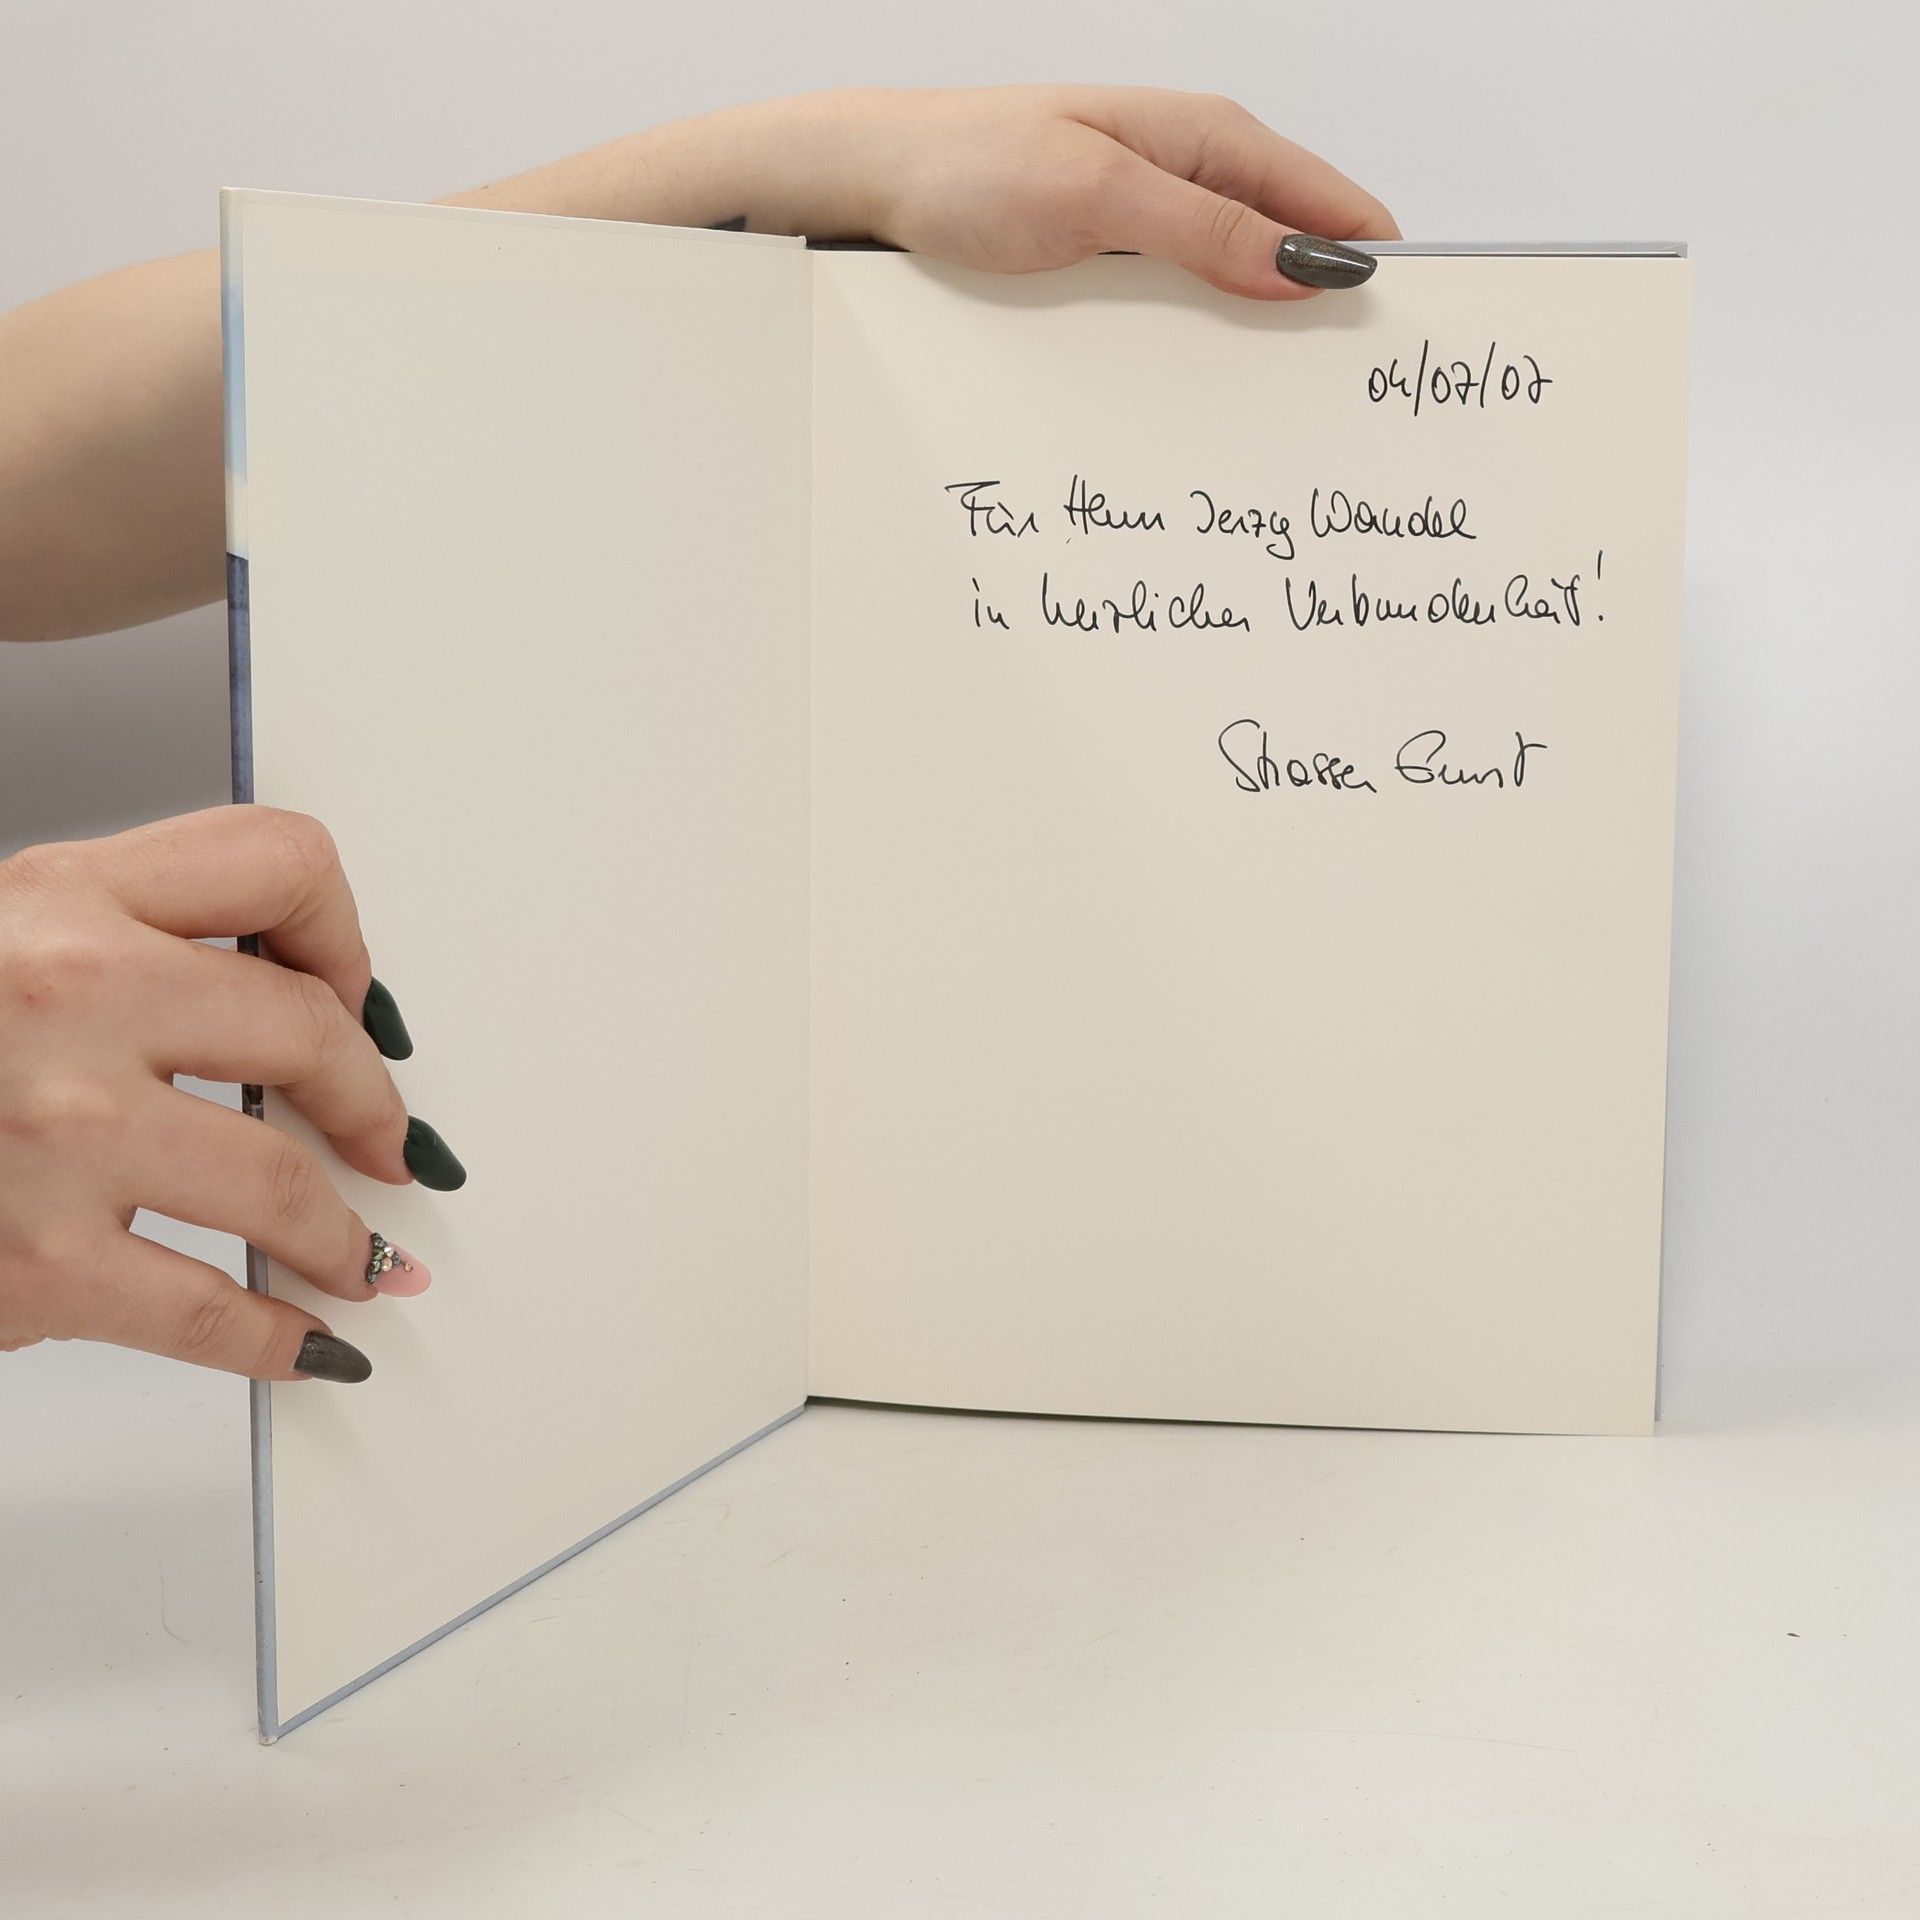 04/07/07
Für Herrn Jerzy Wandel
in herzlicher Verbundenheit!
Strasser Ernst